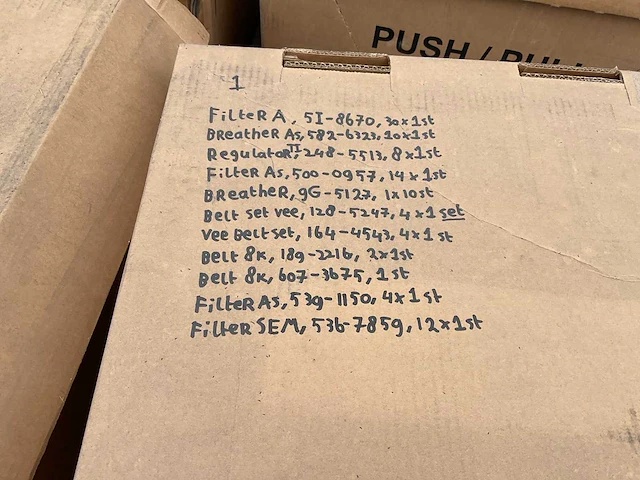 PUSH / PULL
1
FilteR A, 5I-8670, 30x1st
BReatheR As, 582-6323, 10x1st
RegulatoR TI, 248-5513, 8x1st
FilteR As, 500-0957, 14x1st
BReatheR, 9G-5127, 1x10st
Belt set vee, 120-5247, 4x1 set
Vee Belt set, 164-4543, 4x1st
Belt 8K, 189-2216, 2x1st
Belt 8K, 607-3675, 1st
FilteR As, 539-1150, 4x1st
FilteR SEM, 536-7859, 12x1st